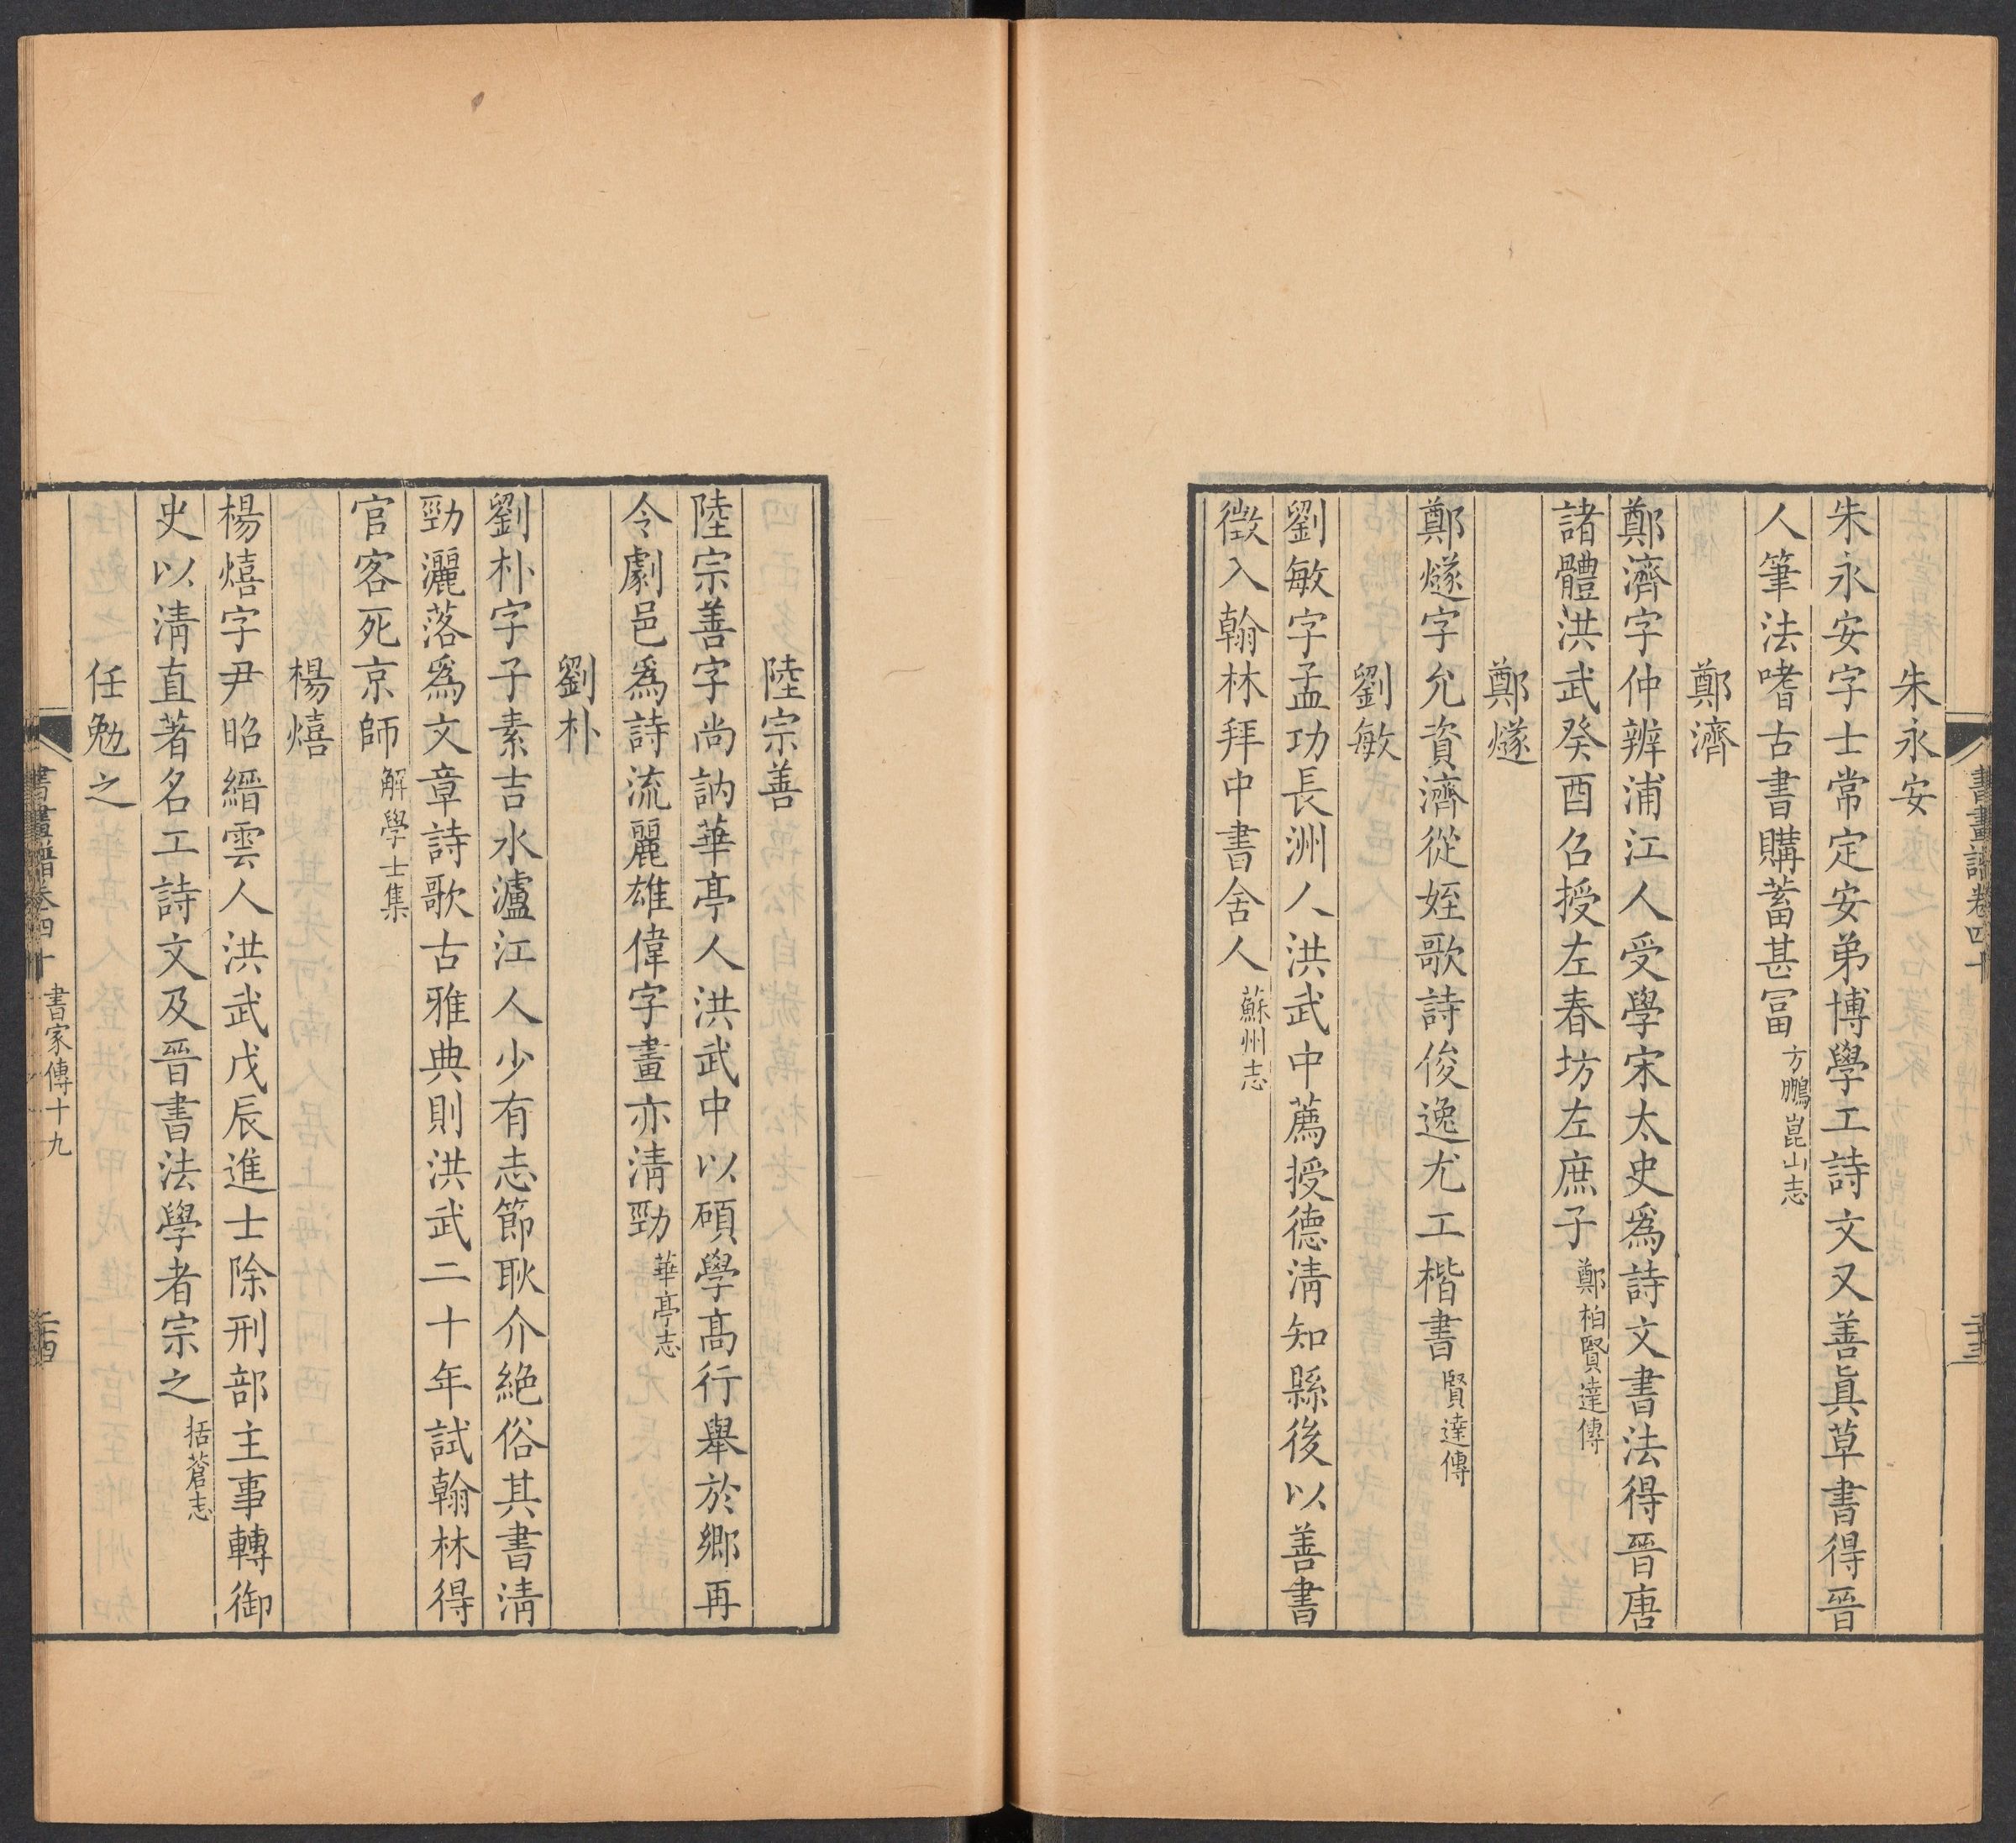 書畫譜卷四十
二十三
朱永安
朱永安字士常定安弟博學工詩文又善眞草書得晉
人筆法嗜古書購蓄甚冨方鵬崑山志
鄭濟
鄭濟字仲辨浦江人受學宋太史爲詩文書法得晉唐
諸體洪武癸酉召授左春坊左庶子鄭柏賢達傳
鄭燧
鄭燧字允資濟從姪歌詩俊逸尤工楷書賢達傳
劉敏
劉敏字孟功長洲人洪武中薦授德淸知縣後以善書
徴入翰林拜中書舍人蘇州志
陸宗善
陸宗善字尚訥華亭人洪武中以碩學髙行舉於鄉再
令劇邑爲詩流麗雄偉字畫亦淸勁華亭志
劉朴
劉朴字子素吉水瀘江人少有志節耿介絶俗其書淸
勁灑落爲文章詩歌古雅典則洪武二十年試翰林得
官客死京師解學士集
楊熺
楊熺字尹昭縉雲人洪武戊辰進士除刑部主事轉御
史以淸直著名工詩文及晉書法學者宗之括蒼志
任勉之
書畫譜卷四十
書家傳十九
二十四